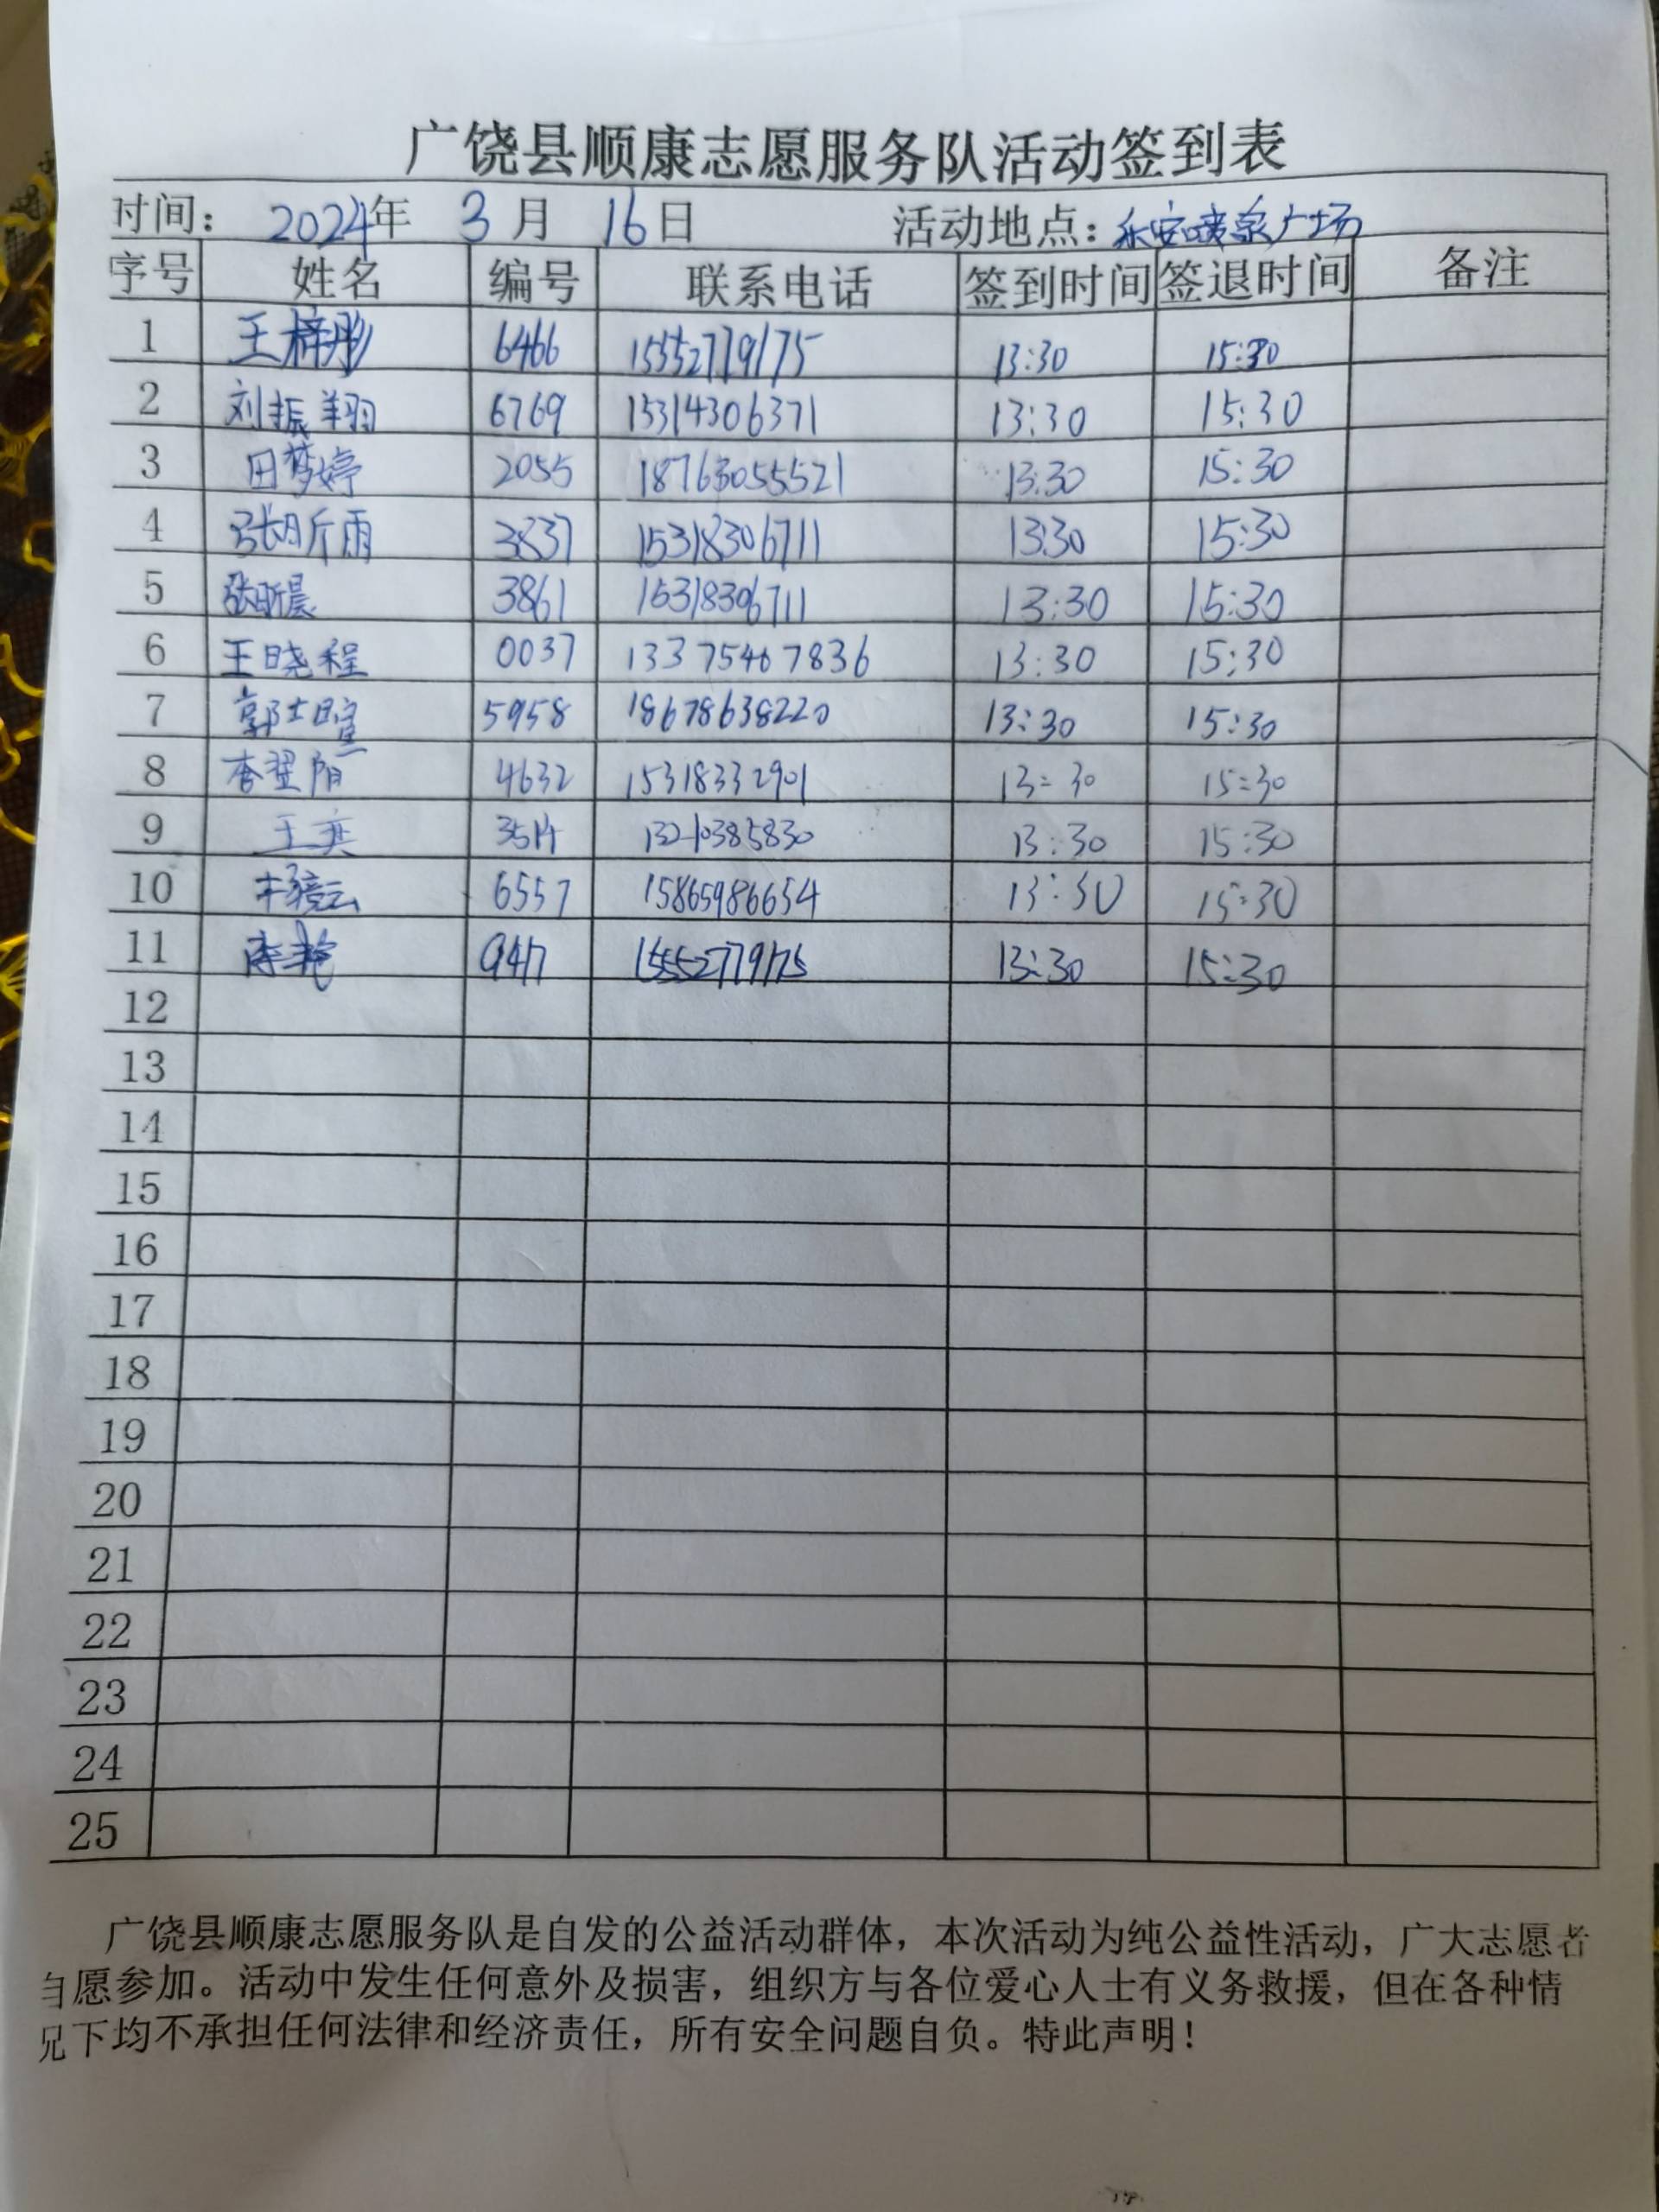 广饶县顺康志愿服务队活动签到表
时间： 2024年 3 月 16日 活动地点：永安喷泉广场
序号 姓名 编号 联系电话 签到时间 签退时间 备注
1 王梓彤 6466 15552779175 13:30 15:30
2 刘振翔 6769 15314306371 13:30 15:30
3 田梦婷 2055 18763055521 13:30 15:30
4 张昕雨 3837 15318306711 13:30 15:30
5 张昕晨 3861 15318306711 13:30 15:30
6 王晓程 0037 13375467836 13:30 15:30
7 郭士暄 5958 18678638220 13:30 15:30
8 李翌阳 4632 15318332901 13:30 15:30
9 王英 13210385830 13:30 15:30
10 6557 15865986654 13:30 15:30
11 李艳 9417 15552779175 13:30 15:30
12
13
14
15
16
17
18
19
20
21
22
23
24
25
广饶县顺康志愿服务队是自发的公益活动群体，本次活动为纯公益性活动，广大志愿者
自愿参加。活动中发生任何意外及损害，组织方与各位爱心人士有义务救援，但在各种情
况下均不承担任何法律和经济责任，所有安全问题自负。特此声明！